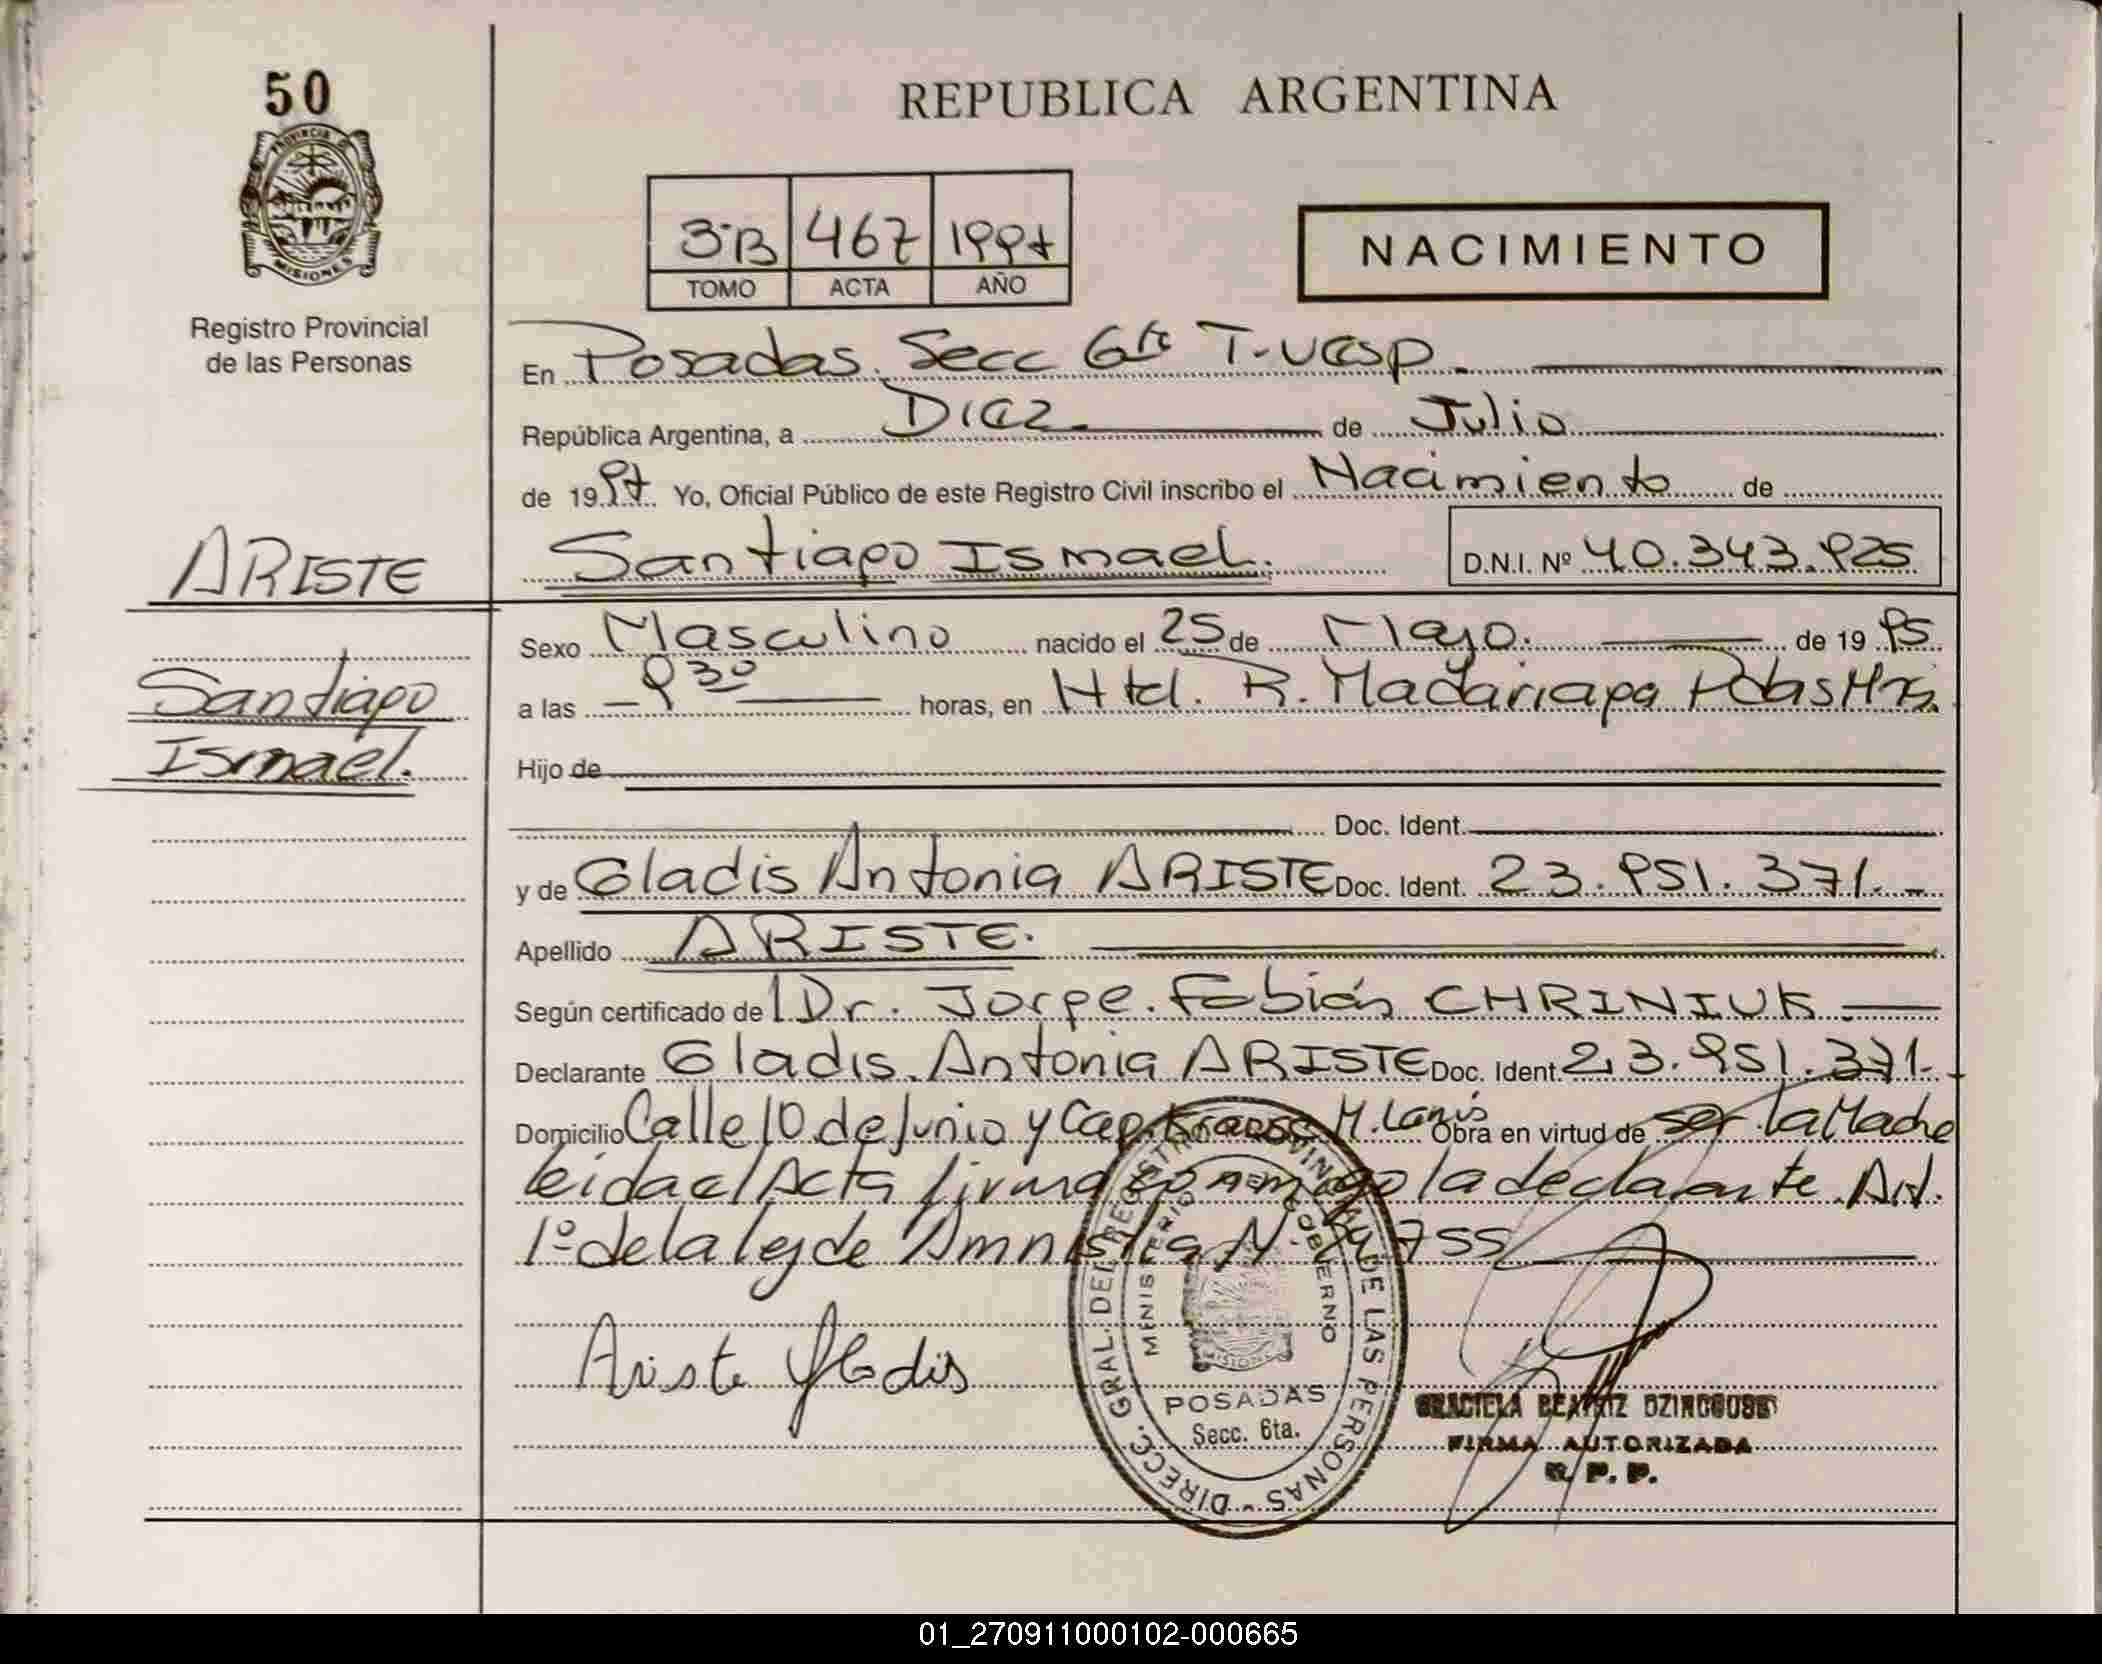 50
PROVINCIA DE
MISIONES
Registro Provincial
de las Personas
ARISTE
Santiago
Ismael.
REPUBLICA ARGENTINA
3-B 467 1997
TOMO ACTA AÑO
NACIMIENTO
En Posadas. Secc 6ta T-vesp.
República Argentina, a Diez de Julio
de 1997. Yo, Oficial Público de este Registro Civil inscribo el Nacimiento de
Santiago Ismael. D.N.I. Nº 40.343.925
Sexo Masculino nacido el 25 de Mayo. de 1995
a las 9 30 horas, en Htal. R. Madariaga Pdas Mns.
Hijo de
Doc. Ident.
y de Gladis Antonia ARISTE Doc. Ident. 23.951.371.-
Apellido ARISTE.
Según certificado de Dr. Jorge. Fabián CHRINIUK
Declarante Gladis. Antonia ARISTE Doc. Ident. 23.951.371.
Domicilio Calle 10 de Junio y Cap. M. Obra en virtud de ser la Madre
leida el Acta firma conmigo la declarante. Art.
1º de la ley de Amnistia Nº 755
Ariste Gladis
DIRECC. GRAL. DEL REGISTRO PROVINCIAL DE LAS PERSONAS -
MINISTERIO DE GOBIERNO
MISIONES
POSADAS
Secc. 6ta.
GRACIELA BEATRIZ
FIRMA AUTORIZADA
R. P. P.
01_270911000102-000665